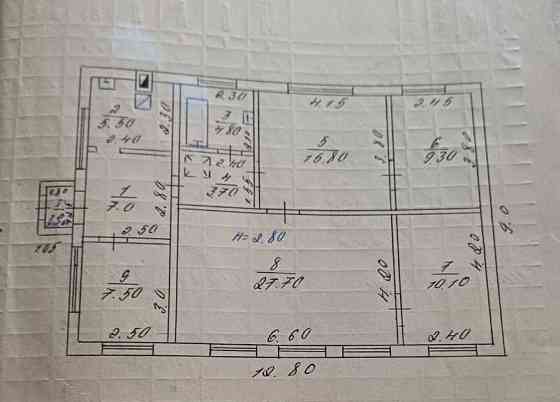 2
5.50
2.40
2.30
2.30
3
4.80
2.40
4
3.70
1.55
4.15
5
16.80
3.80
2.45
6
9.30
3.80
1
7.0
2.80
2.50
1.85
9
7.50
3.0
2.50
H=2.80
8
27.70
4.20
6.60
7
10.10
4.20
2.40
9.0
12.80